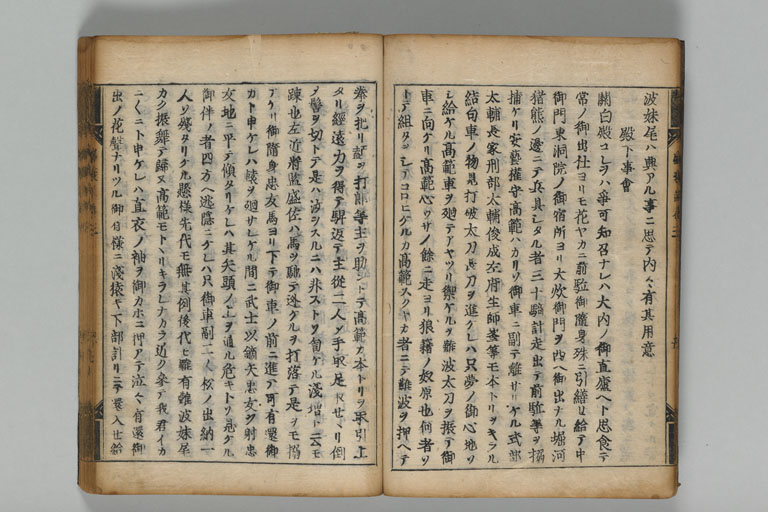 波妹尾ハ興アル事ニ思テ内々有其用意
殿下事會
關白殿コレヲハ爭可知召ナレハ大内ノ御直廬ヘト思食テ
常ノ御出仕ヨリモ花ヤカニ前駈御隨身殊ニ引繕ヒ給テ中
御門東洞院ノ御宿所ヨリ大炊御門ヲ西ヘ御出ナル堀河
猪熊ノ邊ニテ兵具シタル者三十騎計走出テ前駈等ヲ搦
捕ケリ安藝權守高範ハカリソ御車ニ副テ離サリケル式部
太輔長家刑部太輔俊成左府生師峯等モ本トリヲキラル
結句車ノ物見打破太刀長刀ヲ進ケレハ只夢ノ御心地ソ
シ給ケル高範車ヲ廻テアヤツリ禦ケルヲ難波太刀ヲ振テ御
車ニ向ケリ高範心ウサノ餘ニ走ヨリ狼藉ノ奴原也何者ソ
トテ組タリシアコロヒケルカ高範スクヤカ者ニテ難波ヲ押ヘテ
拳ヲ扎リ計ヲ打郎等主ヲ助ントテ高範カ本トリヲ取引上
タリ經遠力ヲ得テ駻返テ主從二人シテ手取足取セリ倒
ノ髻ヲ切トテ是ハ汝ヲスルニハ非ストソ匐ケル淺増ト云モ
疎也左近將監盛佐ハ馬ヲ馳テ逃ケルヲ打落テ是ヲモ搦
アケリ御隨身忠友馬ヨリ下テ御車ノ前ニ進テ可有還御
カト申ケレハ轅ヲ廻サレケル間ニ武士以鏑矢忠友ヲ射忠
友地ニ平テ傾タリケレハ其矢頭ノ上ヲ通ル危キトソ見ケル
御伴ノ者四方ヘ逃隱ニケレハ只御車副二人松ノ出納一
人ソ殘タリケル懸樣先代モ無其例後代モ難有難波妹尾
カク振舞テ歸ヌ高範モトヽリキラレナカラ近ク參テ我君イカ
ニヽクニト申ケレハ直衣ノ袖ヲ御カホニ押アテ泣々有還御
出ノ花聲ナリツル御有樣ニ淺猿キ下部計リニテ還入セ給